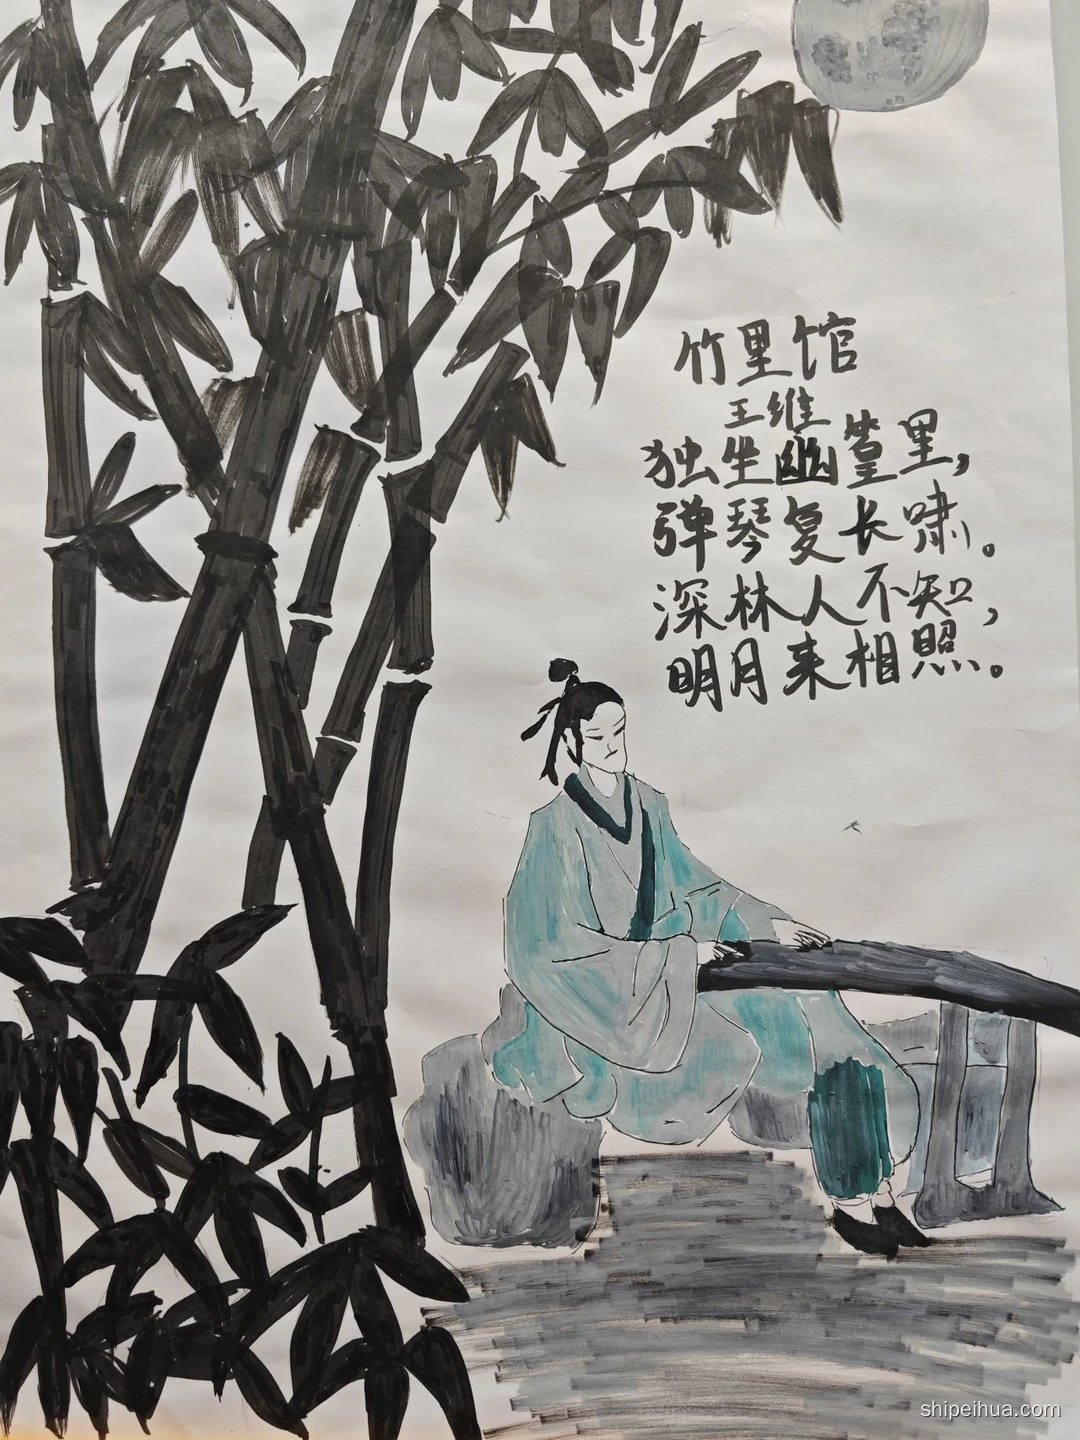 竹里馆
王维
独坐幽篁里，
弹琴复长啸。
深林人不知，
明月来相照。
shipeihua.com